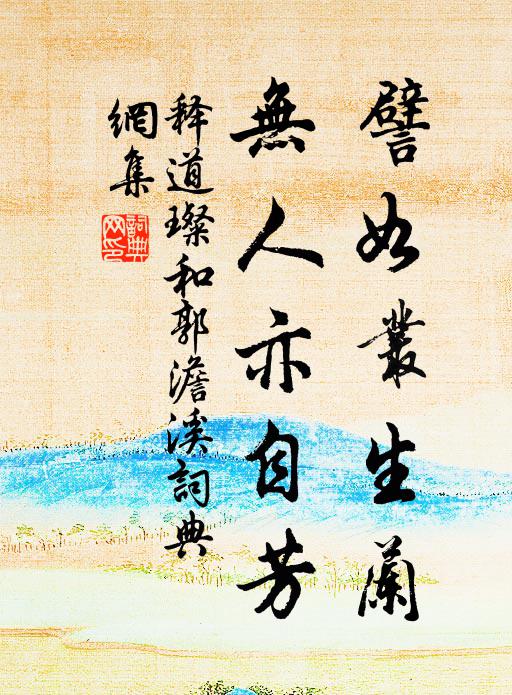 譬如叢生蘭
無人亦自芳
释道璨和郭澹溪詞典
網集
詞典網印